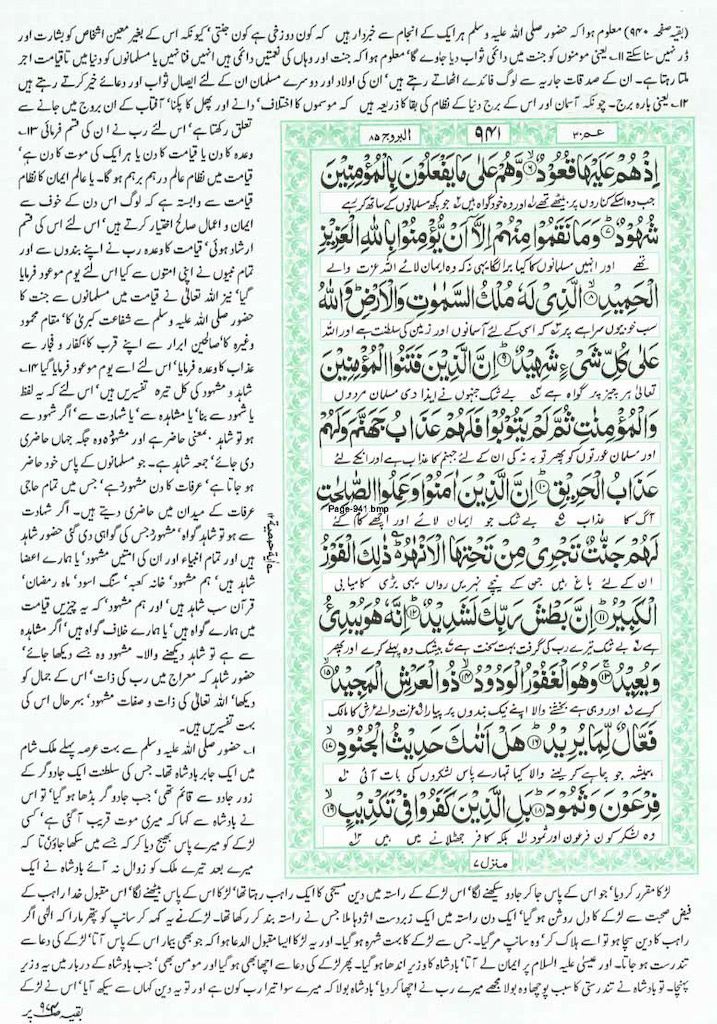 (بقیہ صفحہ ۹۴۰) معلوم ہوا کہ حضور صلی اللہ علیہ وسلم ہر ایک کے انجام سے خبردار ہیں کہ کون دوزخی ہے کون جنتی' کیونکہ اس کے بغیر معین اشخاص کو بشارت اور
ڈر نہیں سنا سکتے ۱۱۔ یعنی مومنوں کو جنت میں دائمی ثواب دیا جاوے گا' معلوم ہوا کہ جنت اور وہاں کی نعمتیں دائمی ہیں انہیں فنا نہیں یا مسلمانوں کو دنیا میں تاقیامت اجر
ملتا رہتا ہے۔ ان کے صدقات جاریہ سے لوگ فائدے اٹھاتے رہتے ہیں' ان کی اولاد اور دوسرے مسلمان ان کے لئے ایصال ثواب اور دعائے خیر کرتے رہتے ہیں
۱۲۔ یعنی بارہ برج۔ چونکہ آسمان اور اس کے برج دنیا کے نظام کی بقا کا ذریعہ ہیں کہ موسموں کا اختلاف' دانے اور پھل کا پکنا' آفتاب کے ان بروج میں جانے سے
تعلق رکھتا ہے' اس لئے رب نے ان کی قسم فرمائی ۱۳۔
وعدہ کا دن یا قیامت کا دن یا ہر ایک کی موت کا دن ہے'
قیامت میں نظام عالم درہم برہم ہو گا۔ یا عالم ایمان کا نظام
قیامت سے وابستہ ہے کہ لوگ اس دن کے خوف سے
ایمان و اعمال صالح اختیار کرتے ہیں' اس لئے اس کی قسم
ارشاد ہوئی' قیامت کا وعدہ رب نے اپنے بندوں سے اور
تمام نبیوں نے اپنی امتوں سے کیا اس لئے یوم موعود فرمایا
گیا' نیز اللہ تعالیٰ نے قیامت میں مسلمانوں سے جنت کا
حضور صلی اللہ علیہ وسلم سے شفاعت کبریٰ کا' مقام محمود
وغیرہ کا' صالحین ابرار سے اپنے قرب کا' کفار و فجار سے
عذاب کا وعدہ فرمایا' اس لئے اسے یوم موعود فرمایا گیا ۱۴۔
شاہد و مشہود کی کل تیرہ تفسیریں ہیں' اس لئے کہ یہ لفظ
یا شہود سے بنا' یا مشاہدہ سے' یا شہادت سے' اگر شہود سے
ہو تو شاہد بمعنی حاضر ہے اور مشہود وہ جگہ جہاں حاضری
دی جائے' جمعہ شاہد ہے۔ جو مسلمانوں کے پاس خود حاضر
ہو جاتا ہے' عرفات کا دن مشہود ہے' جس میں تمام حاجی
عرفات کے میدان میں حاضری دیتے ہیں۔ اگر شہادت
سے ہو تو شاہد گواہ' مشہود' جس کی گواہی دی گئی حضور شاہد
ہیں اور تمام انبیاء اور ان کی امتیں مشہود' یا ہمارے اعضا
شاہد ہیں' ہم مشہود' خانہ کعبہ' سنگ اسود' ماہ رمضان'
قرآن سب شاہد ہیں' اور ہم مشہود' کہ یہ چیزیں قیامت
میں ہمارے گواہ ہیں' یا ہمارے خلاف گواہ ہیں' اگر مشاہدہ
سے ہے تو شاہد دیکھنے والا۔ مشہود وہ جسے دیکھا جائے'
شاہد حضور کہ معراج میں رب کی ذات' اس کے جمال کو
دیکھا' اللہ تعالیٰ کی ذات و صفات مشہود' بہرحال اس کی
بہت تفسیریں ہیں۔
۱۔ حضور صلی اللہ علیہ وسلم سے بہت عرصہ پہلے ملک شام
میں ایک جابر بادشاہ تھا۔ جس کی سلطنت ایک جادوگر کے
زور جادو سے قائم تھی' جب جادو گر بڈھا ہو گیا' تو اس
نے بادشاہ سے کہا کہ میری موت قریب آ گئی ہے' کسی
لڑکے کو میرے پاس بھیج دیا کر کہ جسے میں سکھا جاؤں تا کہ
میرے بعد تیرے ملک کو زوال نہ آئے بادشاہ نے ایک
عم ۳۰
۹۴۱
البروج ۸۵
اِذْ هُمْ عَلَيْهَا قُعُوْدٌ ۙ﴿۶﴾ وَّهُمْ عَلٰى مَا يَفْعَلُوْنَ بِالْمُؤْمِنِيْنَ
جب وہ اسکے کناروں پر بیٹھے تھے اور وہ خود گواہ ہیں جو کچھ مسلمانوں کے ساتھ کر رہے
شُهُوْدٌ ؕ﴿۷﴾ وَمَا نَقَمُوْا مِنْهُمْ اِلَّاۤ اَنْ يُّؤْمِنُوْا بِاللّٰهِ الْعَزِيْزِ
تھے اور انہیں مسلمانوں کا کیا برا لگا یہی نہ کہ وہ ایمان لائے اللہ عزت والے
الْحَمِيْدِ ۙ﴿۸﴾ الَّذِيْ لَهٗ مُلْكُ السَّمٰوٰتِ وَالْاَرْضِ ؕ وَاللّٰهُ
سب خوبیوں سراہے پر کہ اسی کے لئے آسمانوں اور زمین کی سلطنت ہے اور اللہ
عَلٰى كُلِّ شَيْءٍ شَهِيْدٌ ؕ﴿۹﴾ اِنَّ الَّذِيْنَ فَتَنُوا الْمُؤْمِنِيْنَ
تعالیٰ ہر چیز پر گواہ ہے بے شک جنہوں نے ایذا دی مسلمان مردوں
وَالْمُؤْمِنٰتِ ثُمَّ لَمْ يَتُوْبُوْا فَلَهُمْ عَذَابُ جَهَنَّمَ وَلَهُمْ
اور مسلمان عورتوں کو پھر توبہ نہ کی ان کے لئے جہنم کا عذاب ہے اور انکے لئے
عَذَابُ الْحَرِيْقِ ؕ﴿۱۰﴾ اِنَّ الَّذِيْنَ اٰمَنُوْا وَعَمِلُوا الصّٰلِحٰتِ
Page-941.bmp
آگ کا عذاب بے شک جو ایمان لائے اور اچھے کام کئے
لَهُمْ جَنّٰتٌ تَجْرِيْ مِنْ تَحْتِهَا الْاَنْهٰرُ ؕ ذٰلِكَ الْفَوْزُ
ان کے لئے باغ ہیں جن کے نیچے نہریں رواں یہی بڑی کامیابی
الْكَبِيْرُ ؕ﴿۱۱﴾ اِنَّ بَطْشَ رَبِّكَ لَشَدِيْدٌ ؕ﴿۱۲﴾ اِنَّهٗ هُوَ يُبْدِئُ
ہے بے شک تیرے رب کی گرفت بہت سخت ہے بیشک وہ پہلے کرے اور پھر
وَيُعِيْدُ ۚ﴿۱۳﴾ وَهُوَ الْغَفُوْرُ الْوَدُوْدُ ۙ﴿۱۴﴾ ذُو الْعَرْشِ الْمَجِيْدُ ۙ﴿۱۵﴾
کرے اور وہی ہے بخشنے والا اپنے نیک بندوں پر پیارا عزت والے عرش کا مالک
فَعَّالٌ لِّمَا يُرِيْدُ ؕ﴿۱۶﴾ هَلْ اَتٰىكَ حَدِيْثُ الْجُنُوْدِ ۙ﴿۱۷﴾
ہمیشہ جو چاہے کر لینے والا کیا تمہارے پاس لشکروں کی بات آئی
فِرْعَوْنَ وَثَمُوْدَ ؕ﴿۱۸﴾ بَلِ الَّذِيْنَ كَفَرُوْا فِيْ تَكْذِيْبٍ ۙ﴿۱۹﴾
وہ لشکر کون فرعون اور ثمود بلکہ کافر جھٹلانے میں ہیں
منزل ۷
لڑکا مقرر کر دیا' جو اس کے پاس جا کر جادو سیکھنے لگا' اس لڑکے کے راستہ میں دین مسیحی کا ایک راہب رہتا تھا' لڑکا اس کے پاس بیٹھنے لگا' اس مقبول خدا راہب کے
فیض صحبت سے لڑکے کا دل روشن ہو گیا' ایک دن راستہ میں ایک زبردست اژدہا ملا جس نے راستہ بند کر رکھا تھا۔ لڑکے نے یہ کہہ کر سانپ کو پتھر مارا کہ الٰہی اگر
راہب کا دین سچا ہو تو اسے ہلاک کر' وہ سانپ مر گیا۔ جس سے لڑکے کا بہت شہرہ ہو گیا۔ اور یہ لڑکا ایسا مقبول الدعا ہوا کہ جو بھی بیمار اس کے پاس آتا' لڑکے کی دعا سے
تندرست ہو جاتا۔ اور عیسیٰ علیہ السلام پر ایمان لے آتا' بادشاہ کا وزیر اندھا ہو گیا۔ پھر لڑکے کی دعا سے اچھا بھی ہو گیا اور مومن بھی' جب بادشاہ کے دربار میں یہ وزیر
پہنچا۔ تو بادشاہ نے تندرستی کا سبب پوچھا وہ بولا مجھے میرے رب نے اچھا کر دیا' بادشاہ بولا کہ میرے سوا تیرا رب کون ہے اور تو یہ دین کہاں سے سیکھ آیا' اس نے لڑکے
بقیہ صفحہ ۹۷۴ پر